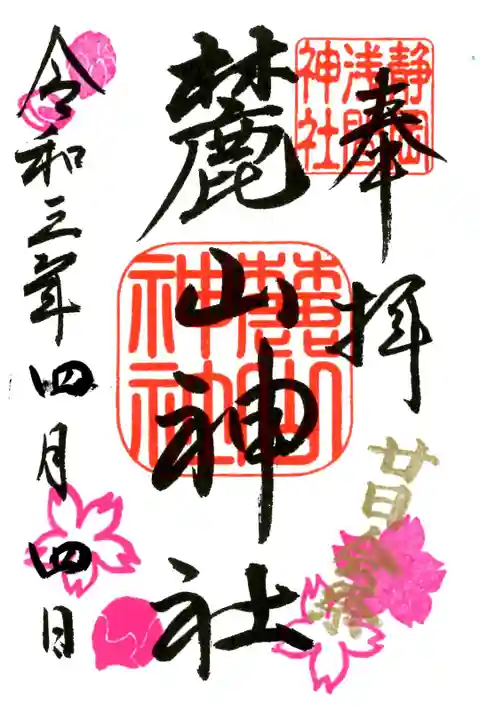 奉拝
静岡
浅間
神社
麓山神社
麓山
神社
廿日会祭
令和三年四月四日